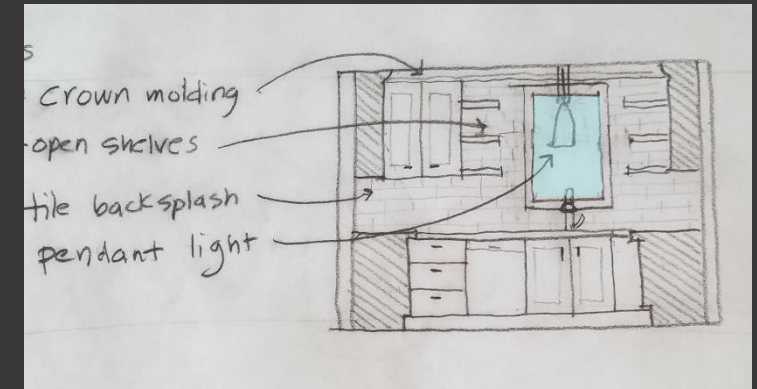 s
crown molding
-open shelves
tile backsplash
pendant light